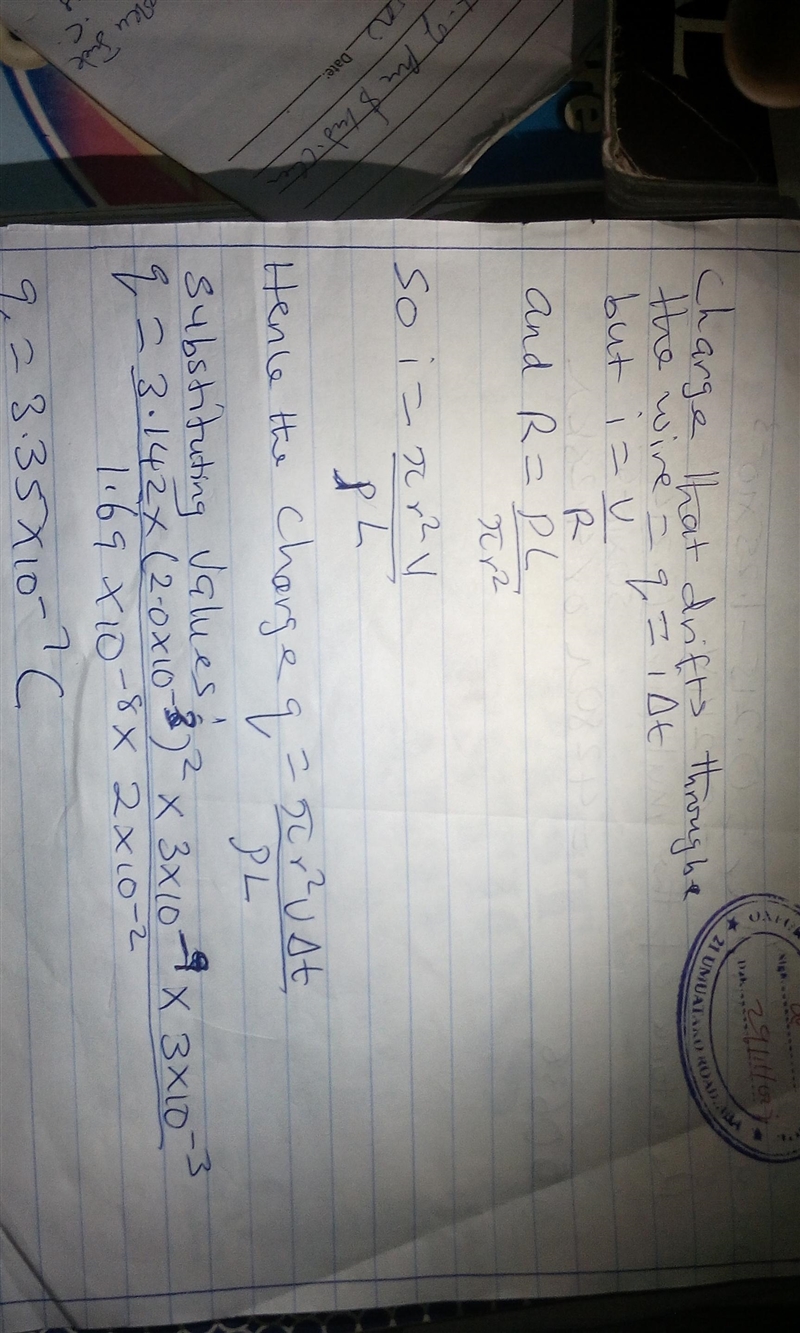 Charge that drifts throughe
the wire = q = iΔt
but i = V
R
and R = ρL
πr²
So i = πr²V
ρL
Hence the charge q = πr²VΔt
ρL
Substituting values;
q = 3.142 x (2.0x10⁻³)² x 3x10⁻⁹ x 3x10⁻³
1.69 x10⁻⁸ x 2x10⁻²
q = 3.35x10⁻⁷C
21 UMUATAKO ROAD, ABA
Sign
Date
Date: